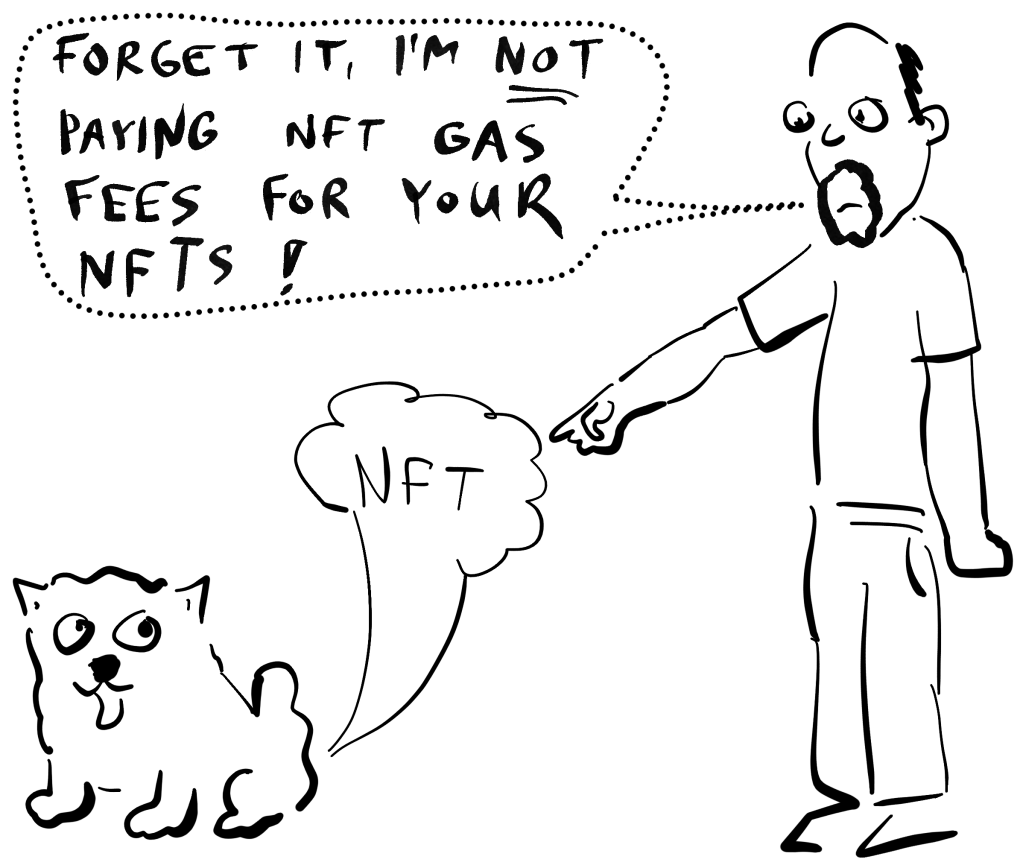 FORGET IT, I'M NOT
PAYING NFT GAS
FEES FOR YOUR
NFTS!
NFT